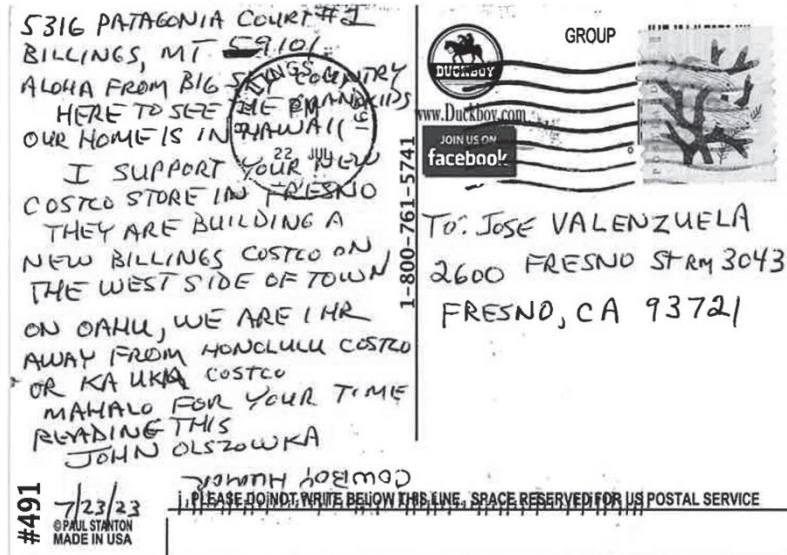 5316 PATAGONIA COURT #1
BILLINGS, MT 59101
ALOHA FROM BIG SKY COUNTRY
HERE TO SEE THE GRANDKIDS
OUR HOME IS IN HAWAII
I SUPPORT YOUR NEW
COSTCO STORE IN FRESNO
THEY ARE BUILDING A
NEW BILLINGS COSTCO ON
THE WEST SIDE OF TOWN
ON OAHU, WE ARE 1 HR
AWAY FROM HONOLULU COSTCO
OR KA UKA COSTCO
MAHALO FOR YOUR TIME
READING THIS
JOHN OLSZOWKA
COWBOY HUMOR
7/23/23
#491
© PAUL STANTON
MADE IN USA
22 JUL
PM
1-800-761-5741
DUCKBOY
GROUP
www.Duckboy.com
JOIN US ON
facebook
TO: JOSE VALENZUELA
2600 FRESNO ST RM 3043
FRESNO, CA 93721
PLEASE DO NOT WRITE BELOW THIS LINE. SPACE RESERVED FOR US POSTAL SERVICE